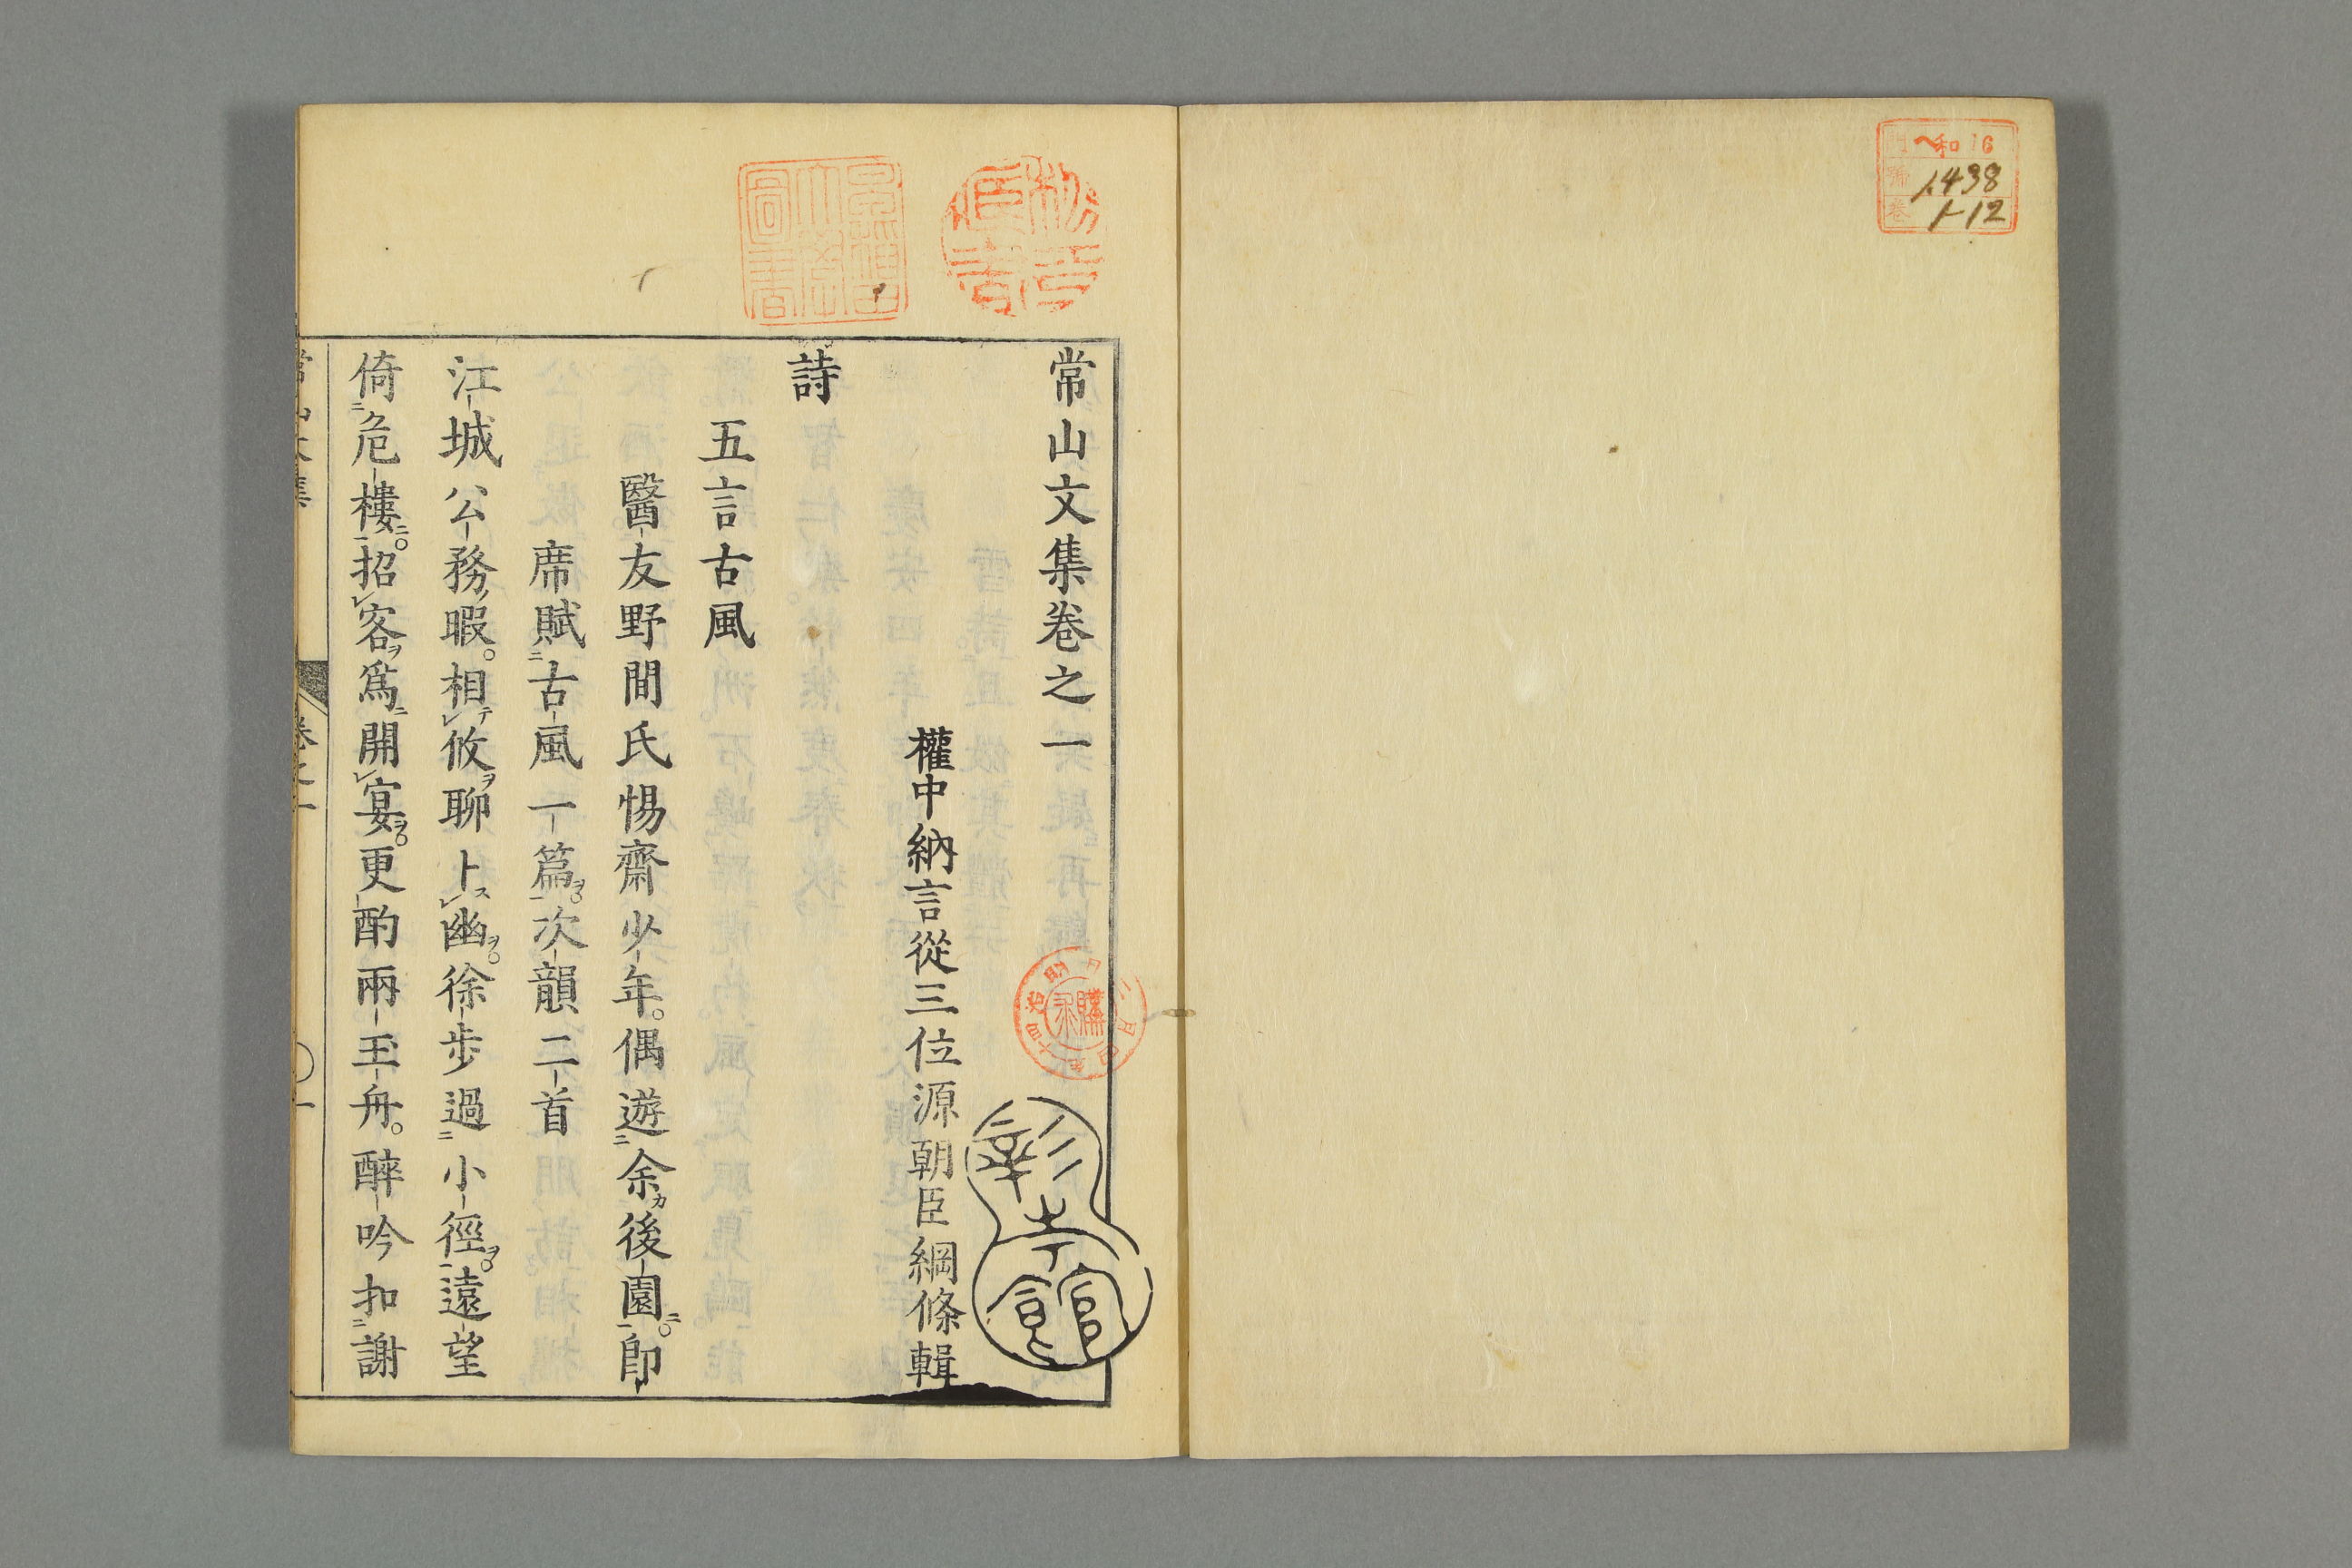 和16
1438
1-12
常山文集卷之一
權中納言從三位源朝臣綱條輯
詩
五言古風
醫友野間氏惕齋少年。偶遊余後園。即
席賦古風一篇。次韻二首
江城公務暇。相攸聊卜幽。徐步過小徑。遠望
倚危樓。招客爲開宴。更酌兩玉舟。醉吟扣謝
彰考館